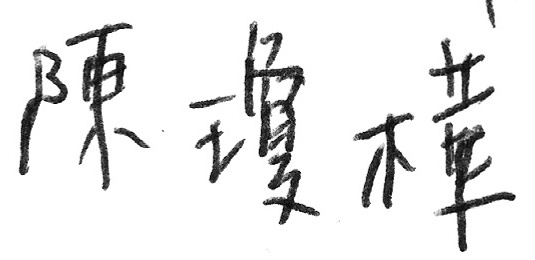 陳瓊樺